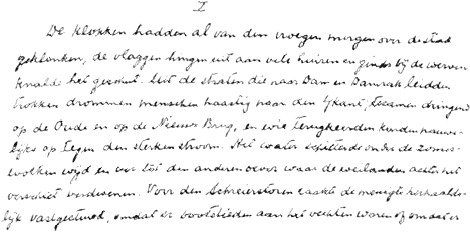 I
De klokken hadden al van den vroegen morgen over de stad
geklonken, de vlaggen hingen uit aan vele huizen en ginds bij de werven
knalde het geschut. Uit de straten die naar Dam en Damrak leidden
trokken drommen menschen haastig naar den IJkant, tesamen dringend
op de Oude en op de Nieuwe Brug, en wie terugkeerden konden nauwe-
lijks op tegen den sterken stroom. Het water schitterde onder de zomer-
wolken wijd en ver tot den anderen oever waar de weilanden achter het
verschiet verdwenen. Voor den Schreierstoren raakte de menigte herhaalde-
lijk vastgestuwd, omdat er bootslieden aan het vechten waren of omdat er